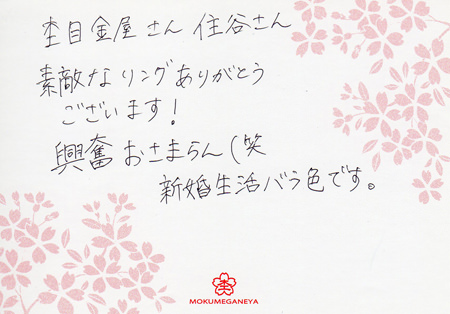 杢目金屋さん 住谷さん
素敵なリングありがとう
ございます!
興奮おさまらん(笑
新婚生活バラ色です。
杢
MOKUMEGANEYA